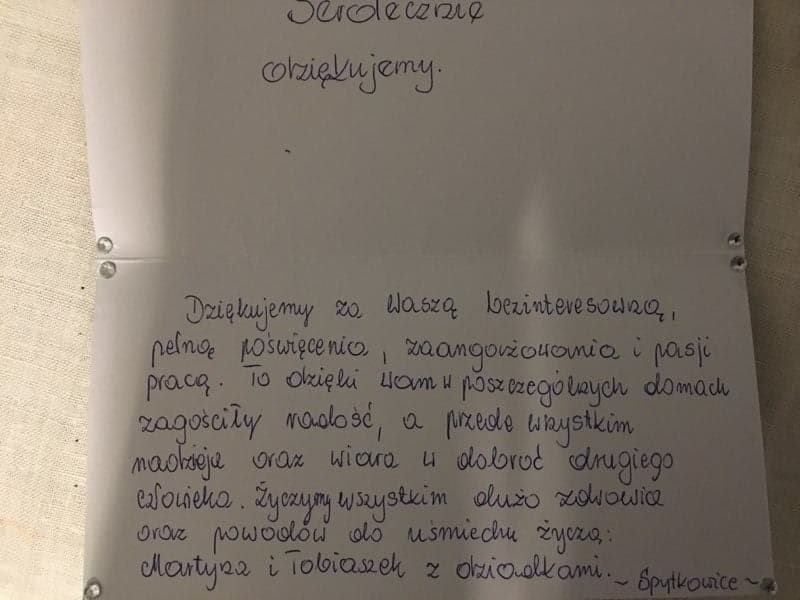 Serdecznie
dziękujemy.
Dziękujemy za Waszą bezinteresowną,
pełną poświęcenia, zaangażowania i pasji
pracą. To dzięki Wam w poszczególnych domach
zagościły radość, a przede wszystkim
nadzieja oraz wiara w dobroć drugiego
człowieka. Życzymy wszystkim dużo zdrowia
oraz powodów do uśmiechu życzą:
Martyna i Tobiaszek z dziadkami.
~ Spytkowice ~